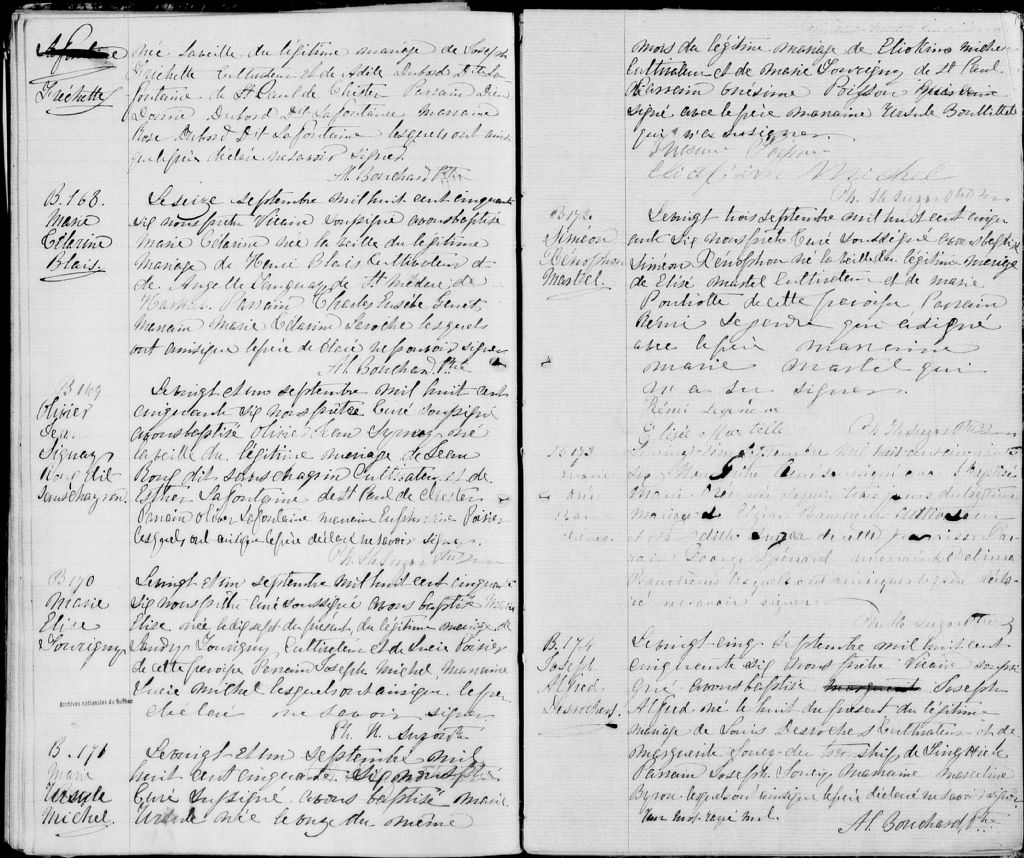 Lafontaine
Frichette
née la veille du légitime mariage de Joseph
Frichette Cultivateur et de Adile Dubord Dit La
fontaine de St Paul de Chester Parrain Dieu
Donné Dubord Dit Lafontaine Marraine
Rose Dubord Dit Lafontaine lesquels ont ainsi
que le père déclaré ne savoir signer.
Al. Bouchard Ptre
B. 168.
Marie
Célarine
Blais.
Le seize septembre mil huit cent cinquante
six nous prêtre Vicaire soussigné avons baptisé
Marie Célarine née la veille du légitime
Mariage de Henri Blais Cultivateur et
de Angelle Tanguay de St Médard de
Parrain Charles Eusèbe
Marraine Marie Célarine Laroche lesquels
ont ainsi que le père déclaré ne pouvoir signer
Al. Bouchard Ptre
B 169
Olivier
Jean
Signay
Rouf dit
Sanschagrin
Le vingt et un septembre mil huit cent
cinquante six nous prêtre Curé soussigné
avons baptisé Olivier Jean Synay né
la veille du légitime mariage de Jean
Rouf dit Sanschagrin Cultivateur et de
Esther Lafontaine de St Paul de Chester
Parrain Oliver Lafontaine marraine Euphrosine Poisier
lesquels ont ainsi que le père déclaré ne savoir signer.
Ph. H. Suzor Ptre
B 170
Marie
Elise
Tourigny
Le vingt et un septembre mil huit cent cinquante
six nous prêtre curé soussigné avons baptisé Marie
Elise, née le dix sept du présent, du légitime mariage de
Landry Tourigny, Cultivateur et de Lucie Poisier
de cette paroisse Parrain Joseph Michel, Marraine
Lucie Michel lesquels ont ainsi que le père
déclaré ne savoir signer
Ph. H. Suzor Ptre
Archives nationales du Québec
B. 171
Marie
Ursule
Michel.
Le vingt et un septembre mil
huit cent cinquante six nous prêtre
Curé sussigné avons baptisé Marie
Ursule née le onze du même
mois du légitime mariage de Eliakim Michel
Cultivateur et de Marie Tourigny de St Paul
Parrain Onésime Poisson
signé avec le père marraine Ursule Bouthillet
qui n'a su signer.
Onésime Poisson
Eliakim Michel
Ph. H. Suzor Ptre
B 172
Siméon
Xénophon
Martel.
Le vingt trois septembre mil huit cent cinqu
ante six nous prêtre Curé soussigné avons baptisé
Siméon Xénophon né la veille du légitime mariage
de Elisé Martel Cultivateur et de Marie
Pouliotte de cette paroisse Parrain
Remi Lependu qui a signé
avec le père marraine
Marie Martel qui
n'a su signer.
Elisée Martelle
Ph. H. Suzor Ptre
B 173
Marie
Le vingt cinq septembre mil huit cent cinquante
six Nous prêtre Curé soussigné avons baptisé
Marie née depuis trois jours du légitime
Mariage de Cultivateur
et de de cette paroisse Par
rain marraine
lesquels ont ainsi que le père décla
ré ne savoir signer
Ph. H. Suzor Ptre
B. 174
Joseph
Alfred
Desrochers.
Le vingt cinq septembre mil huit cent
cinquante six Nous prêtre Vicaire soussi
gné avons baptisé Joseph
Alfred né le huit du présent du légitime
mariage de Louis Desroches Cultivateur et de
Marguerite Joncy du Township de Tingwick
Parrain Joseph Marraine Marceline
Byron lesquels ont ainsi que le père déclaré ne savoir signer
Un mot rayé nul.
Al. Bouchard, Ptre